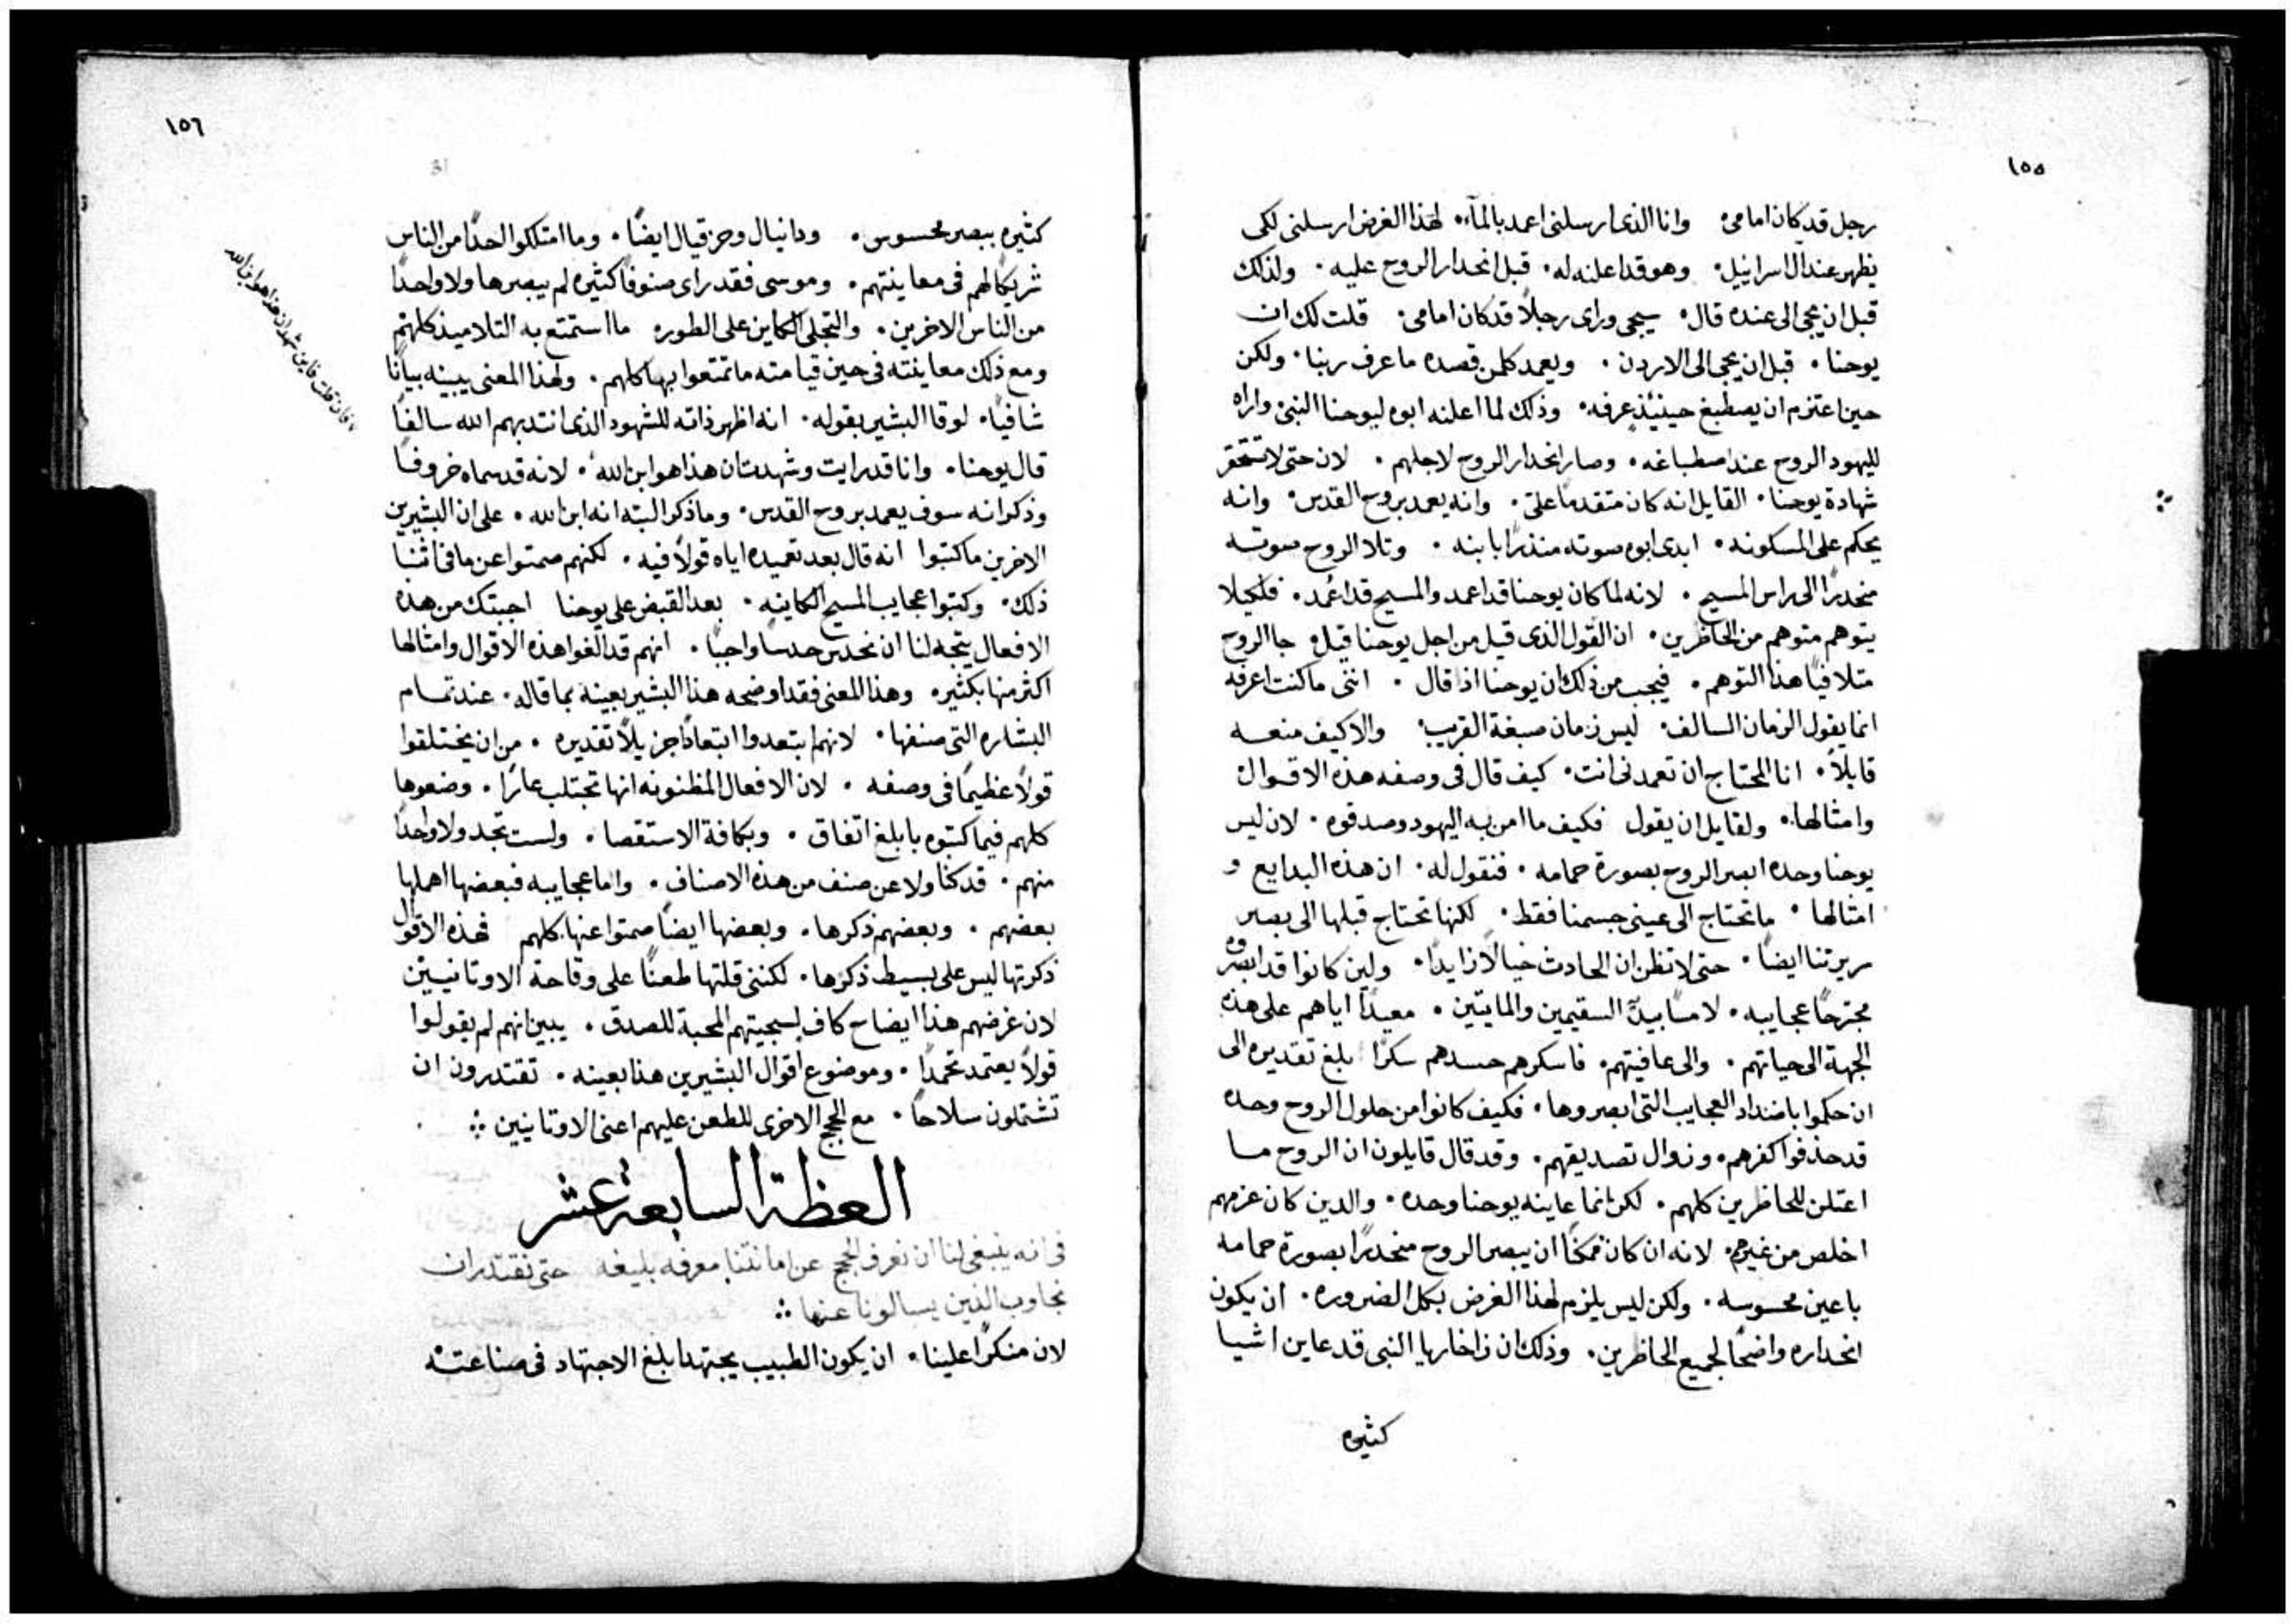 ١٥٥
رجل قد كان امامى۰ وانا الذى ارسلنى اعمد بالمآء۰ لهذا الغرض ارسلنى لكى
يظهر عند ال اسراييل۰ وهو قد اعلنه له۰ قبل انحدار الروح عليه۰ ولذلك
قبل ان يجى الى عنده قال۰ سيجى وراى رجلاً قد كان امامى۰ قلت لك ان
يوحنا۰ قبل ان يجى الى الاردن۰ ويعمد كلمن قصده ما عرف ربنا۰ ولكن
حين اعتزم ان يصطبغ حينيذٍ عرفه۰ وذلك لما اعلنه ابوه ليوحنا النبى واراه
لليهود الروح عند اصطباغه۰ وصار انحدار الروح لاجلهم۰ لان حتى لا تحتقر
شهادة يوحنا۰ القايل انه كان متقدماً علىّ۰ وانه يعمد بروح القدس۰ وانه
يحكم على المسكونه۰ ابدى ابوه صوته منذراً بابنه۰ وتلا الروح صوته
منحدراً الى راس المسيح۰ لانه لما كان يوحنا قد اعمد والمسيح قد اعُمد۰ فلكيلا
يتوهم متوهم من الحاظرين۰ ان القول الذى قيل من اجل يوحنا قيل۰ جا الروح
متلافياً هذا التوهم۰ فيجب من ذلك ان يوحنا اذا قال۰ اننى ما كنت اعرفه
انما يقول الزمان السالف۰ ليس زمان صبغة القريب۰ والا كيف منعه
قايلاً۰ انا المحتاج ان تعمدنى انت۰ كيف قال فى وصفه هذه الاقوال
وامثالها۰ ولقايل ان يقول فكيف ما امن به اليهود وصدقوه۰ لان ليس
يوحنا وحده ابصر الروح بصورة حمامه۰ فنقول له۰ ان هذه البدايع و
امثالها۰ ما تحتاج الى عينى جسمنا فقط۰ لكنها تحتاج قبلها الى بصر
سريرتنا ايضاً۰ حتى لا تظن ان الحادث خيالاً زايداً۰ ولين كانوا قد ابصروه
مجترحاً عجايبه۰ لامساً بيدّ السقيمين والمايتين۰ معيداً اياهم على هذه
الجهة الى حياتهم۰ والى عافيتهم۰ فاسكرهم حسدهم سكراً بلغ تقديره الى
ان حكموا باضداد العجايب التى ابصروها۰ فكيف كانوا من حلول الروح وحده
قد حذفوا كفرهم۰ وزوال تصديقهم۰ وقد قال قايلون ان الروح ما
اعتلن للحاظرين كلهم۰ لكن انما عاينه يوحنا وحده۰ والدين كان عزمهم
اخلص من غيرهم۰ لانه ان كان ممكناً ان يبصر الروح منحدراً بصورة حمامه
باعين محسوسه۰ ولكن ليس يلزم لهذا الغرض بكل الضروره۰ ان يكون
انحداره واضحاً لجميع الحاظرين۰ وذلك ان زاخاريا النبى قد عاين اشيا
كثيره
١٥٦
كثيره ببصر محسوس۰ ودانيال وحزقيال ايضاً۰ وما امتلكوا احداً من الناس
شريكاً لهم فى معاينتهم۰ وموسى فقد راى صنوفاً كثيره لم يبصرها ولا واحداً
من الناس الاخرين۰ والتجلى الكاين على الطور۰ ما استمتع به التلاميذ كلهم
ومع ذلك معاينته فى حين قيامته ما تمتعوا بها كلهم۰ ولهذا المعنى يبينه بياناً
شافياً۰ لوقا البشير بقوله۰ انه اظهر ذاته للشهود الذى انتدبهم الله سالفاً
قال يوحنا۰ وانا قد رايت وشهدت ان هذا هو ابن الله۰ لانه قد سماه خروفاً
وذكر انه سوف يعمد بروح القدس۰ وما ذكر البته انه ابن الله۰ على ان البشيرين
الاخرين ما كتبوا انه قال بعد تعميده اياه قولاً فيه۰ لكنهم صمتوا عن ما فى اثنا
ذلك۰ وكتبوا عجايب المسيح الكاينه۰ بعد القبض على يوحنا اجبتك من هذه
الافعال يتجه لنا ان نحدس حدساً واجباً۰ انهم قد الغوا هذه الاقوال وامثالها
اكثر منها بكثير۰ وهذا المعنى فقد اوضحه هذا البشير بعينه بما قاله۰ عند تمام
البشاره التى صنفها۰ لانهم ابتعدوا ابتعاداً جزيلاً تقديره۰ من ان يختلقوا
قولاً عظيماً فى وصفه۰ لان الافعال المظنونه انها تجتلب عاراً۰ وضعوها
كلهم فيما كتبوه بابلغ اتفاق۰ وبكافة الاستقصا۰ ولست تجد ولا واحداً
منهم۰ قد كنا ولا عن صنف من هذه الاصناف۰ واما عجايبه فبعضها اهملها
بعضهم۰ وبعضهم ذكرها۰ وبعضها ايضاً صمتوا عنها كلهم فهذه الاقوال
ذكرتها ليس على بسيط ذكرها۰ لكننى قلتها طعناً على وقاحة الاوتانيين
لان غرضهم هذا ايضاح كاف لسجيتهم المحبة للصدق۰ يبين انهم لم يقولوا
قولاً يعتمد تحمداً۰ وموضوع اقوال البشيرين هذا بعينه۰ تقتدرون ان
تشتملون سلاحاً۰ مع الحجج الاخرى للطعن عليهم اعنى الاوتانيين ჻
العظة السابعة عشر
فى انه ينبغى لنا ان نعرف الحجج عن امانتنا معرفه بليغه حتى نقتدر ان
نجاوب الذين يسالونا عنها ჻
لان منكراً علينا۰ ان يكون الطبيب يجتهد ابلغ الاجتهاد فى صناعته
فان قلت فاين شهد ان هذا هو ابن الله